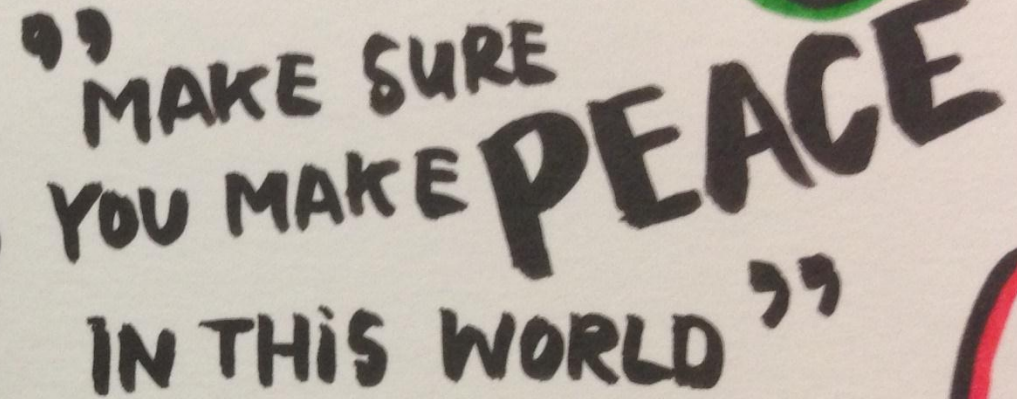 "MAKE SURE
YOU MAKE PEACE
IN THiS WORLD"